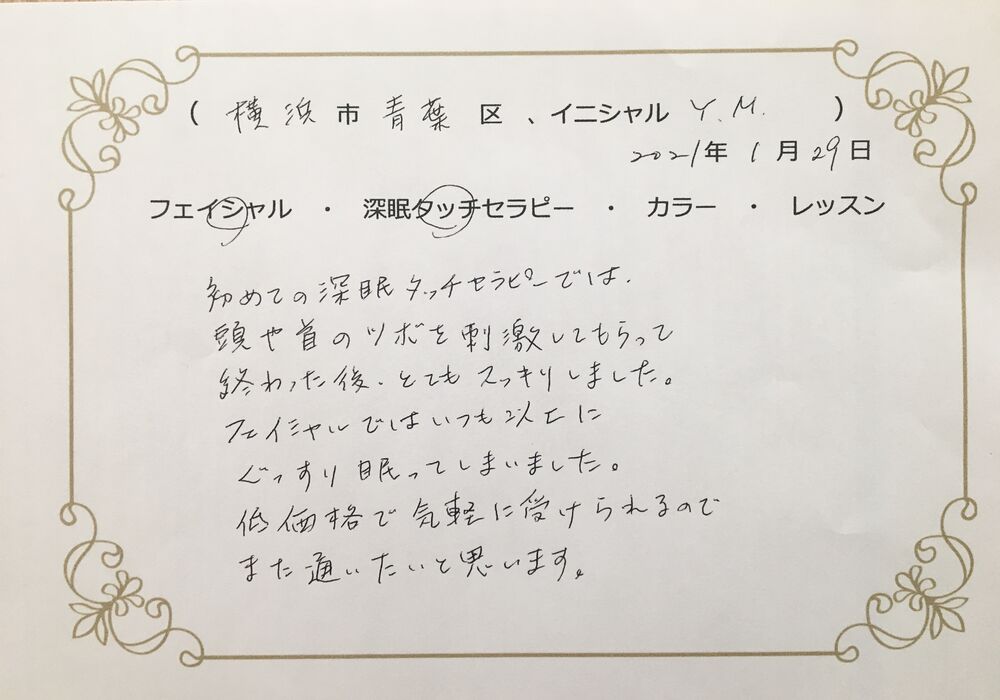 ( 横浜市青葉区、イニシャル Y.M. )
2021年1月29日
フェイシャル ・ 深眠タッチセラピー ・ カラー ・ レッスン
初めての深眠タッチセラピーでは、
頭や首のツボを刺激してもらって
終わった後、とてもスッキリしました。
フェイシャルではいつも以上に
ぐっすり眠ってしまいました。
低価格で気軽に受けられるので
また通いたいと思います。